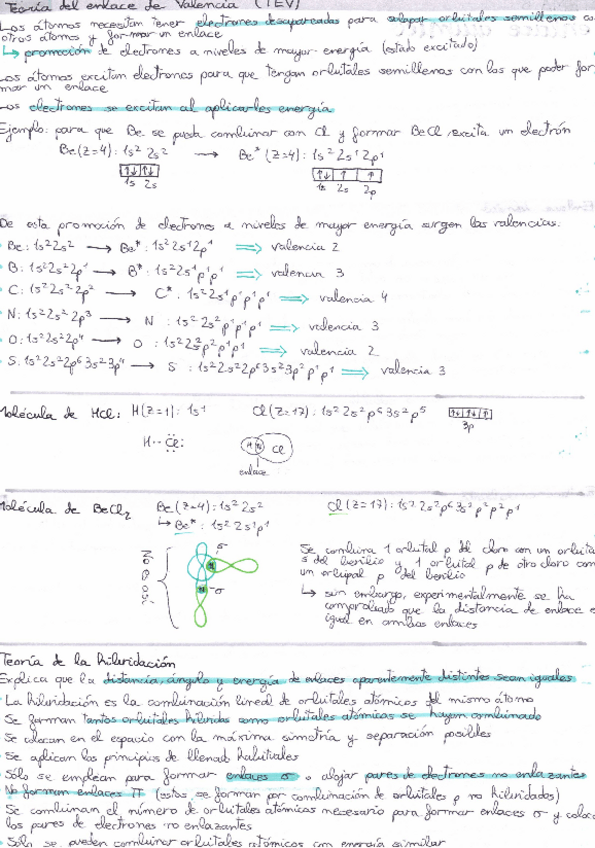 Teoría del enlace de Valencia (TEV)
Los átomos necesitan tener electrones desapareados para solapar orbitales semillenos
otros átomos y formar un enlace
↳ promoción de electrones a niveles de mayor energía (estado excitado)
Los átomos excitan electrones para que tengan orbitales semillenos con los que poder for
mar un enlace
Los electrones se excitan al aplicarles energía
Ejemplo: para que Be se pueda combinar con Cl y formar BeCl, excita un electrón
Be(z=4): 1s² 2s² → Be* (z=4): 1s² 2s¹ 2p¹
↑↓ ↑↓ ↑↓ ↑ ↑
1s 2s 1s 2s 2p
De esta promoción de electrones a niveles de mayor energía surgen las valencias.
· Be: 1s² 2s² → Be*: 1s² 2s¹ 2p¹ ⇒ valencia 2
· B: 1s² 2s² 2p¹ → B*: 1s² 2s¹ p¹ p¹ ⇒ valencia 3
· C: 1s² 2s² 2p² → C*: 1s² 2s¹ p¹ p¹ p¹ ⇒ valencia 4
· N: 1s² 2s² 2p³ → N: 1s² 2s² p¹ p¹ p¹ ⇒ valencia 3
· O: 1s² 2s² 2p⁴ → O: 1s² 2s² p² p¹ p¹ ⇒ valencia 2
· S: 1s² 2s² 2p⁶ 3s² 3p⁴ → S: 1s² 2s² 2p⁶ 3s² 3p² p¹ p¹ ⇒ valencia 3
Molécula de HCl: H(z=1): 1s¹ Cl(z=17): 1s² 2s² p⁶ 3s² p⁵ ↑↓ ↑↓ ↑
3p
H·· Cl: H Cl
enlace
Molécula de BeCl₂ Be(z=4): 1s² 2s² Cl(z=17): 1s² 2s² p⁶ 3s² p² p² p¹
↳ Be*: 1s² 2s¹ p¹
No 90º! σ σ
Se combina 1 orbital p del cloro con un orbita
s del berilio y 1 orbital p de otro cloro con
un orbital p del berilio
↳ sin embargo, experimentalmente se ha
comprobado que la distancia de enlace e
igual en ambos enlaces
Teoría de la hibridación
Explica que la distancia, ángulo y energía de enlaces aparentemente distintos sean iguales
· La hibridación es la combinación lineal de orbitales atómicos del mismo átomo
· Se forman tantos orbitales híbridos como orbitales atómicos se hayan combinado
· Se colocan en el espacio con la máxima simetría y separación posibles
· Se aplican los principios de llenado habituales
· Sólo se emplean para formar enlaces σ o alojar pares de electrones no enlazantes
No forman enlaces π (estos se forman por combinación de orbitales p no hibridados)
· Se combinan el número de orbitales atómicos necesario para formar enlaces σ y coloca
los pares de electrones no enlazantes
· Sólo se pueden combinar orbitales atómicos con energía similar